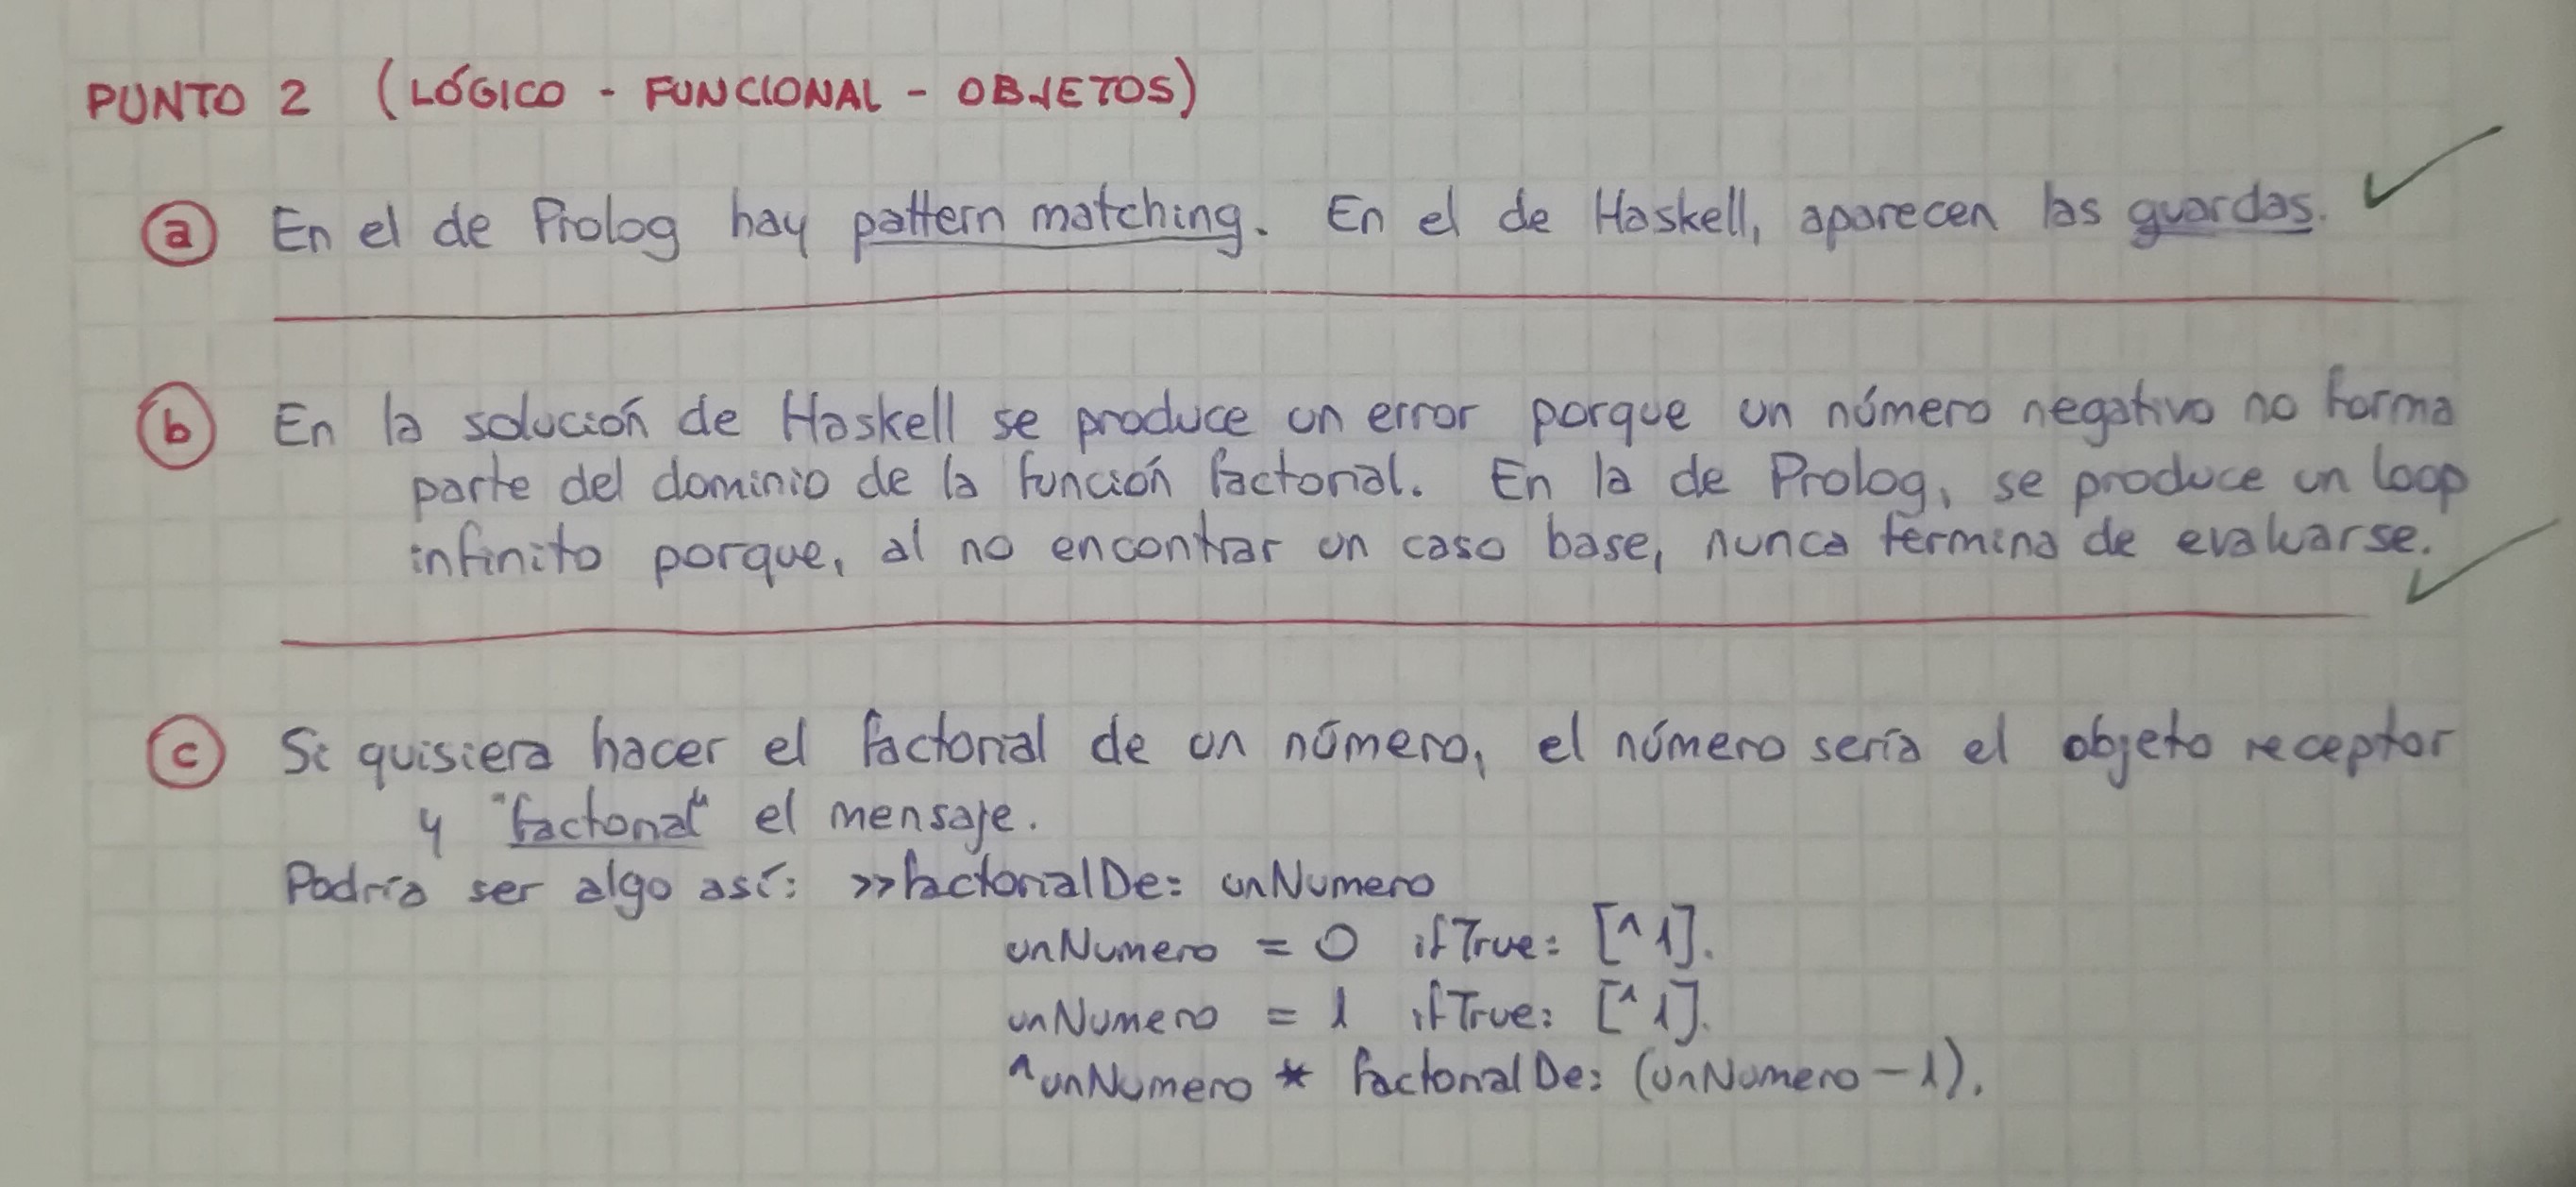 PUNTO 2 (LÓGICO - FUNCIONAL - OBJETOS)
a En el de Prolog hay pattern matching. En el de Haskell, aparecen las guardas.
b En la solución de Haskell se produce un error porque un número negativo no forma
parte del dominio de la función factorial. En la de Prolog, se produce un loop
infinito porque, al no encontrar un caso base, nunca termina de evaluarse.
c Si quisiera hacer el factorial de un número, el número sería el objeto receptor
y "factorial" el mensaje.
Podría ser algo así: >>factorialDe: unNumero
unNumero = 0 ifTrue: [^1].
unNumero = 1 ifTrue: [^1].
^unNumero * factorialDe: (unNumero-1).